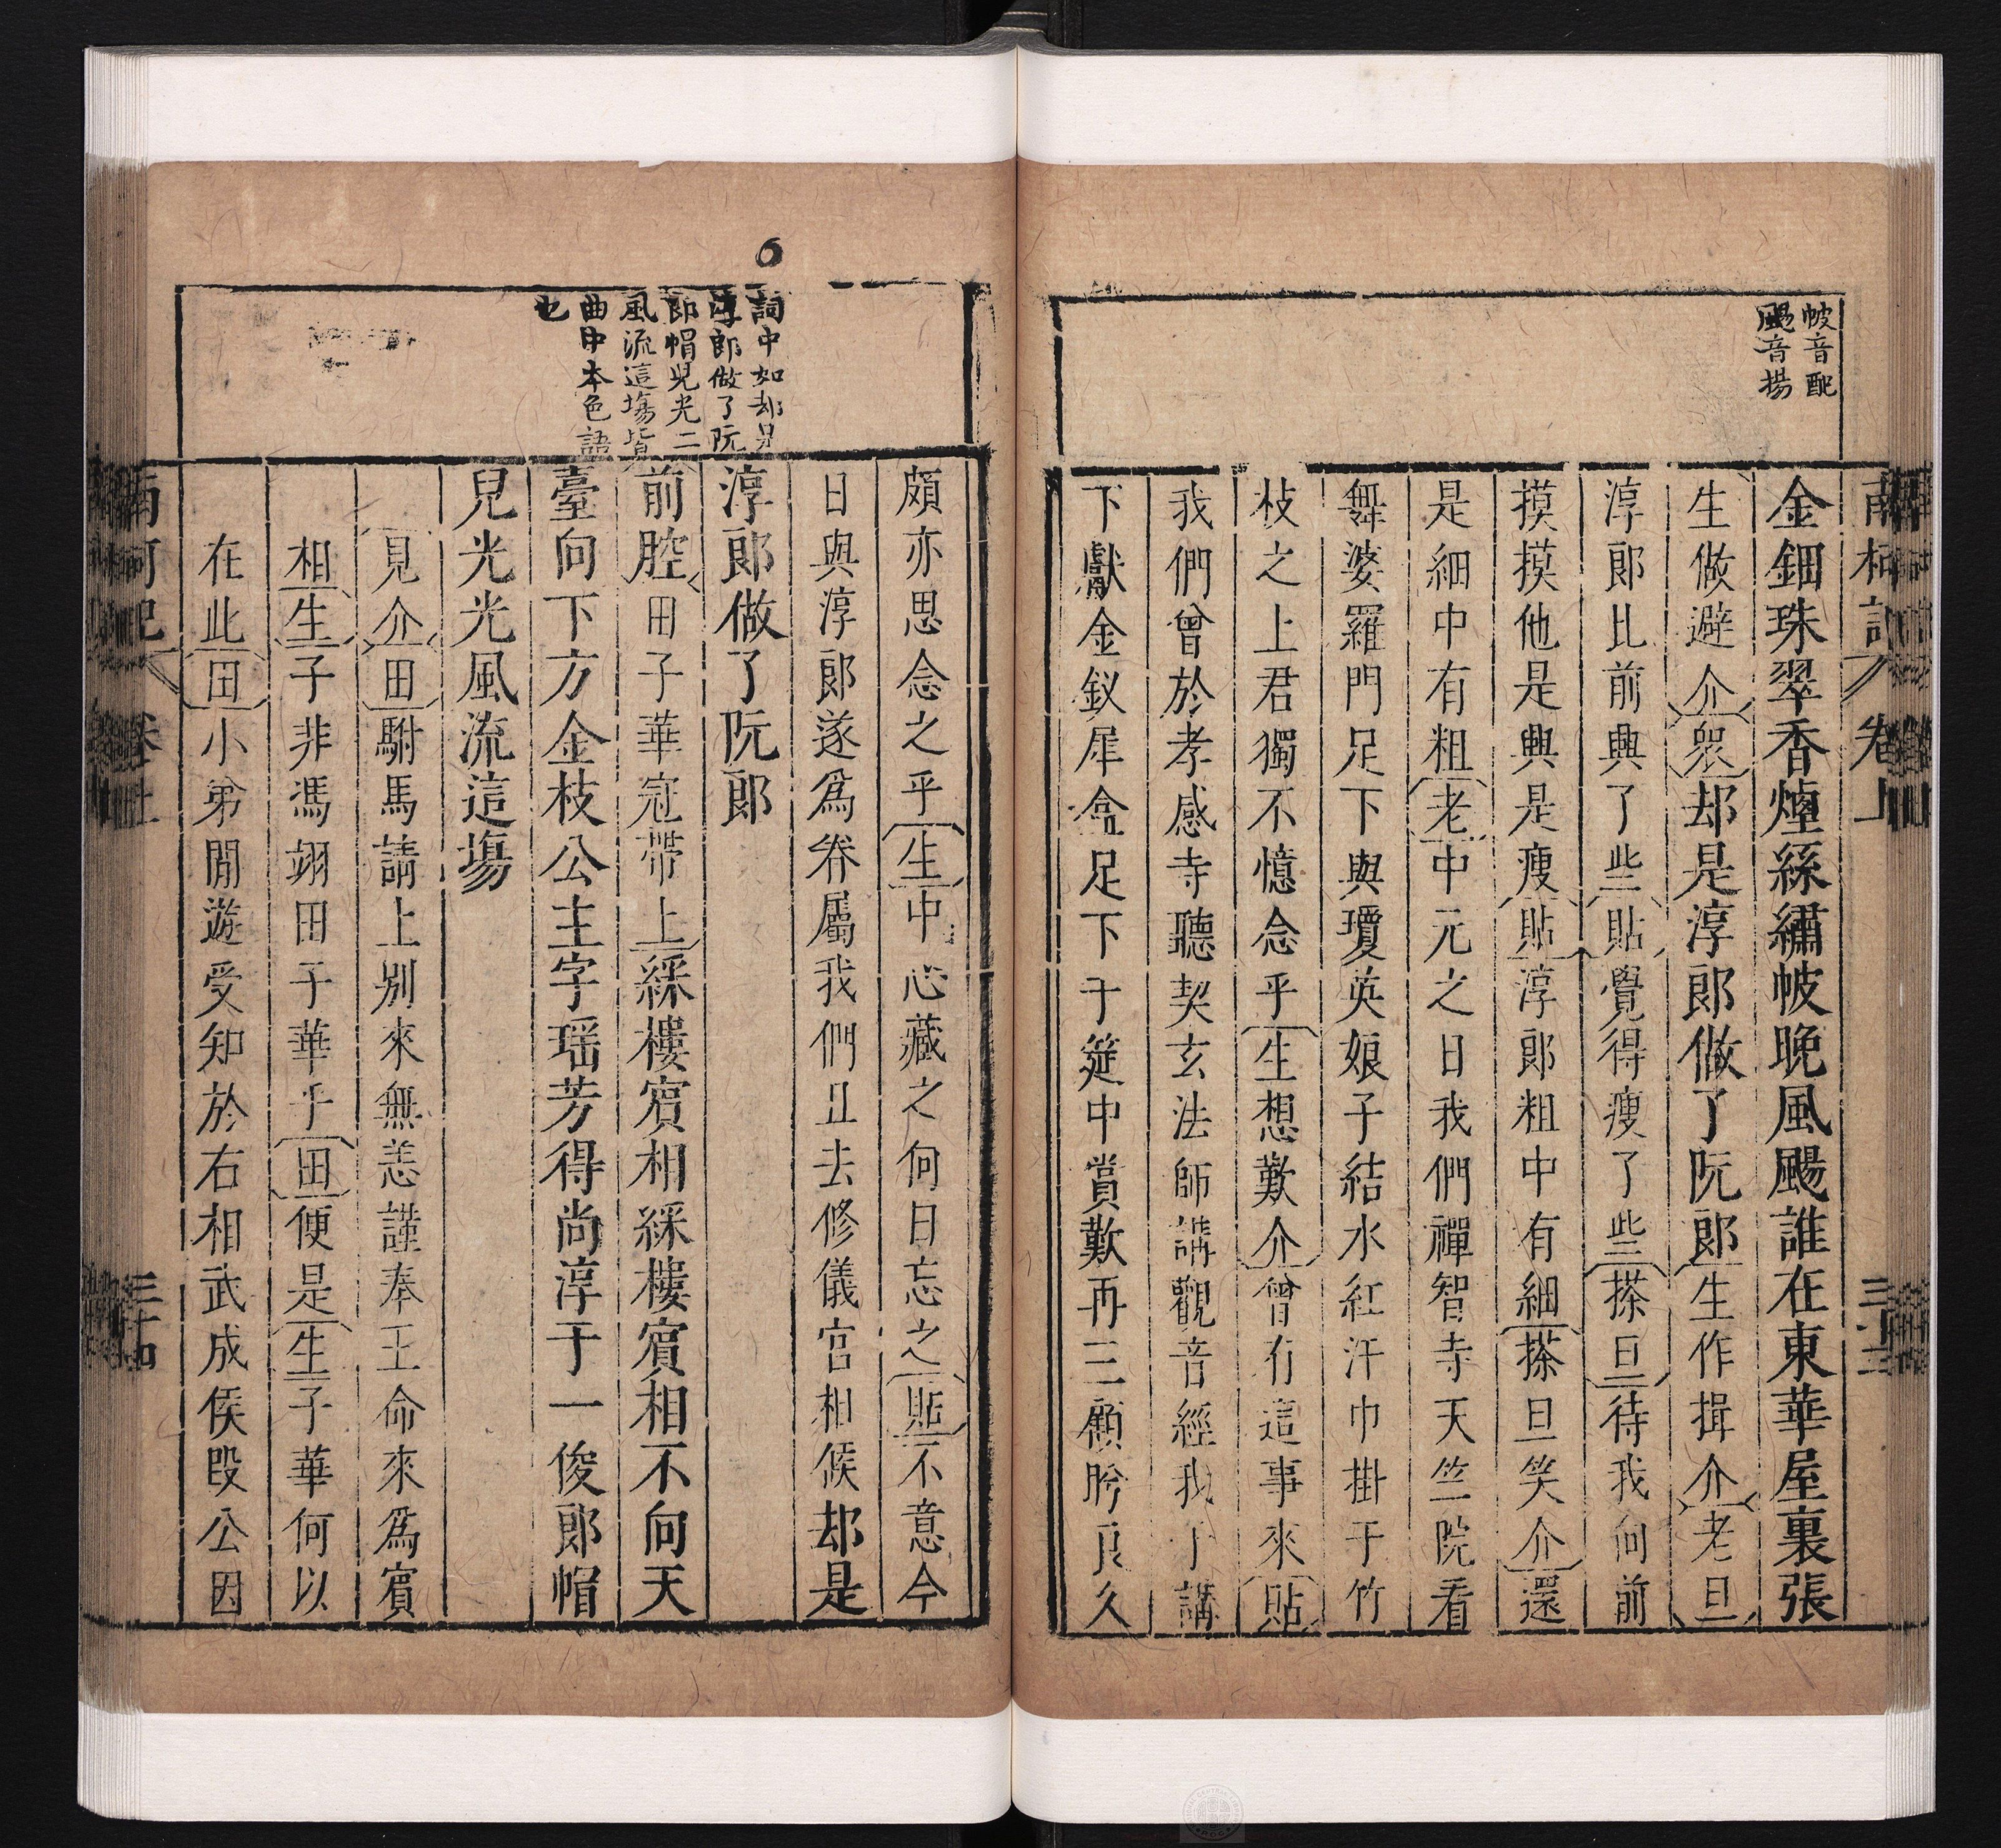 南柯記 卷上 三十三
帔音配
颺音揚
金鈿珠翠香煙絲繡帔晚風颺誰在東華屋裏張
生做避介衆却是淳郎做了阮郎生作揖介老旦
淳郎比前興了些貼覺得瘦了些搽旦待我向前
摸摸他是興是瘦貼淳郎粗中有細搽旦笑介還
是細中有粗老中元之日我們禪智寺天竺院看
舞婆羅門足下與瓊英娘子結水紅汗巾掛于竹
枝之上君獨不憶念乎生想歎介曾有這事來貼
我們曾於孝感寺聽契玄法師講觀音經我于講
下獻金釵犀盒足下于筵中賞歎再三顧盻良久
頗亦思念之乎生中心藏之何日忘之貼不意今
日與淳郎遂爲眷屬我們且去修儀宮相候却是
淳郎做了阮郎
詞中如却是
淳郎做了阮
郎帽兒光二
風流這塲皆
曲中本色語
也
前腔田子華冠帶上綵樓賓相綵樓賓相不向天
臺向下方金枝公主字瑤芳得尚淳于一俊郎帽
兒光光風流這塲
見介田駙馬請上別來無恙謹奉王命來爲賓
相生子非馮翊田子華乎田便是生子華何以
在此田小弟閒遊受知於右相武成侯段公因
南柯記 卷上 三十四